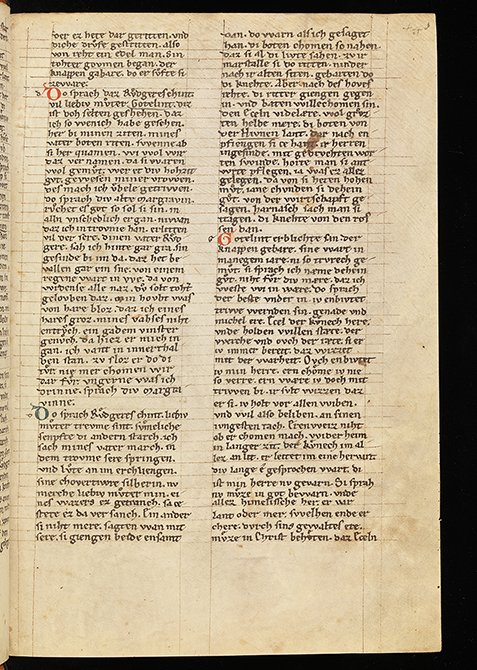 oder er hete dar geritten. vnd
dicke dvrſe geſtritten. alſo
von reht ein edel man. Sin
tohter govmen began. der
knappen gabare. do er ſvfte ſi
zeware.
Do ſprach daz Rvdgeres chint.
vil liebiv mvter. Gotelint. diz
iſt doh ſelten geſchehen. daz
ich ſo wenich habe geſehen.
her bi minen ziten. mines
vater boten riten. ſwenne ab
ſi her quamen. wi wol wir
daz vernamen. da ſi waren
wol gemvt. wer er div hohzit
gvt. geweſen miner vrowen.
des mach ich vbele getrowen.
do ſprach div alte margravin.
ruchet es got ſo ſol iz ſin. in
alln vnſchedlich ergan. niwan
daz ich in trovme han. erlitten
vil der ſere. dinen vater Rvd
gere. ſah ich hinte gar gra. ſin
geſinde bi im da. daz het be
vallen gar ein ſne. von einem
regene wart in we. da von
wrdenſie alle naz. dv ſolt toht
gelovben daz. min hovbt was
von hare bloz. daz ich eines
hares groz. mines vahſes niht
entrvch. ein gadem vinſter
genvch. da hiez er mich in
gan. ich vant in innerthal
ben ſtan. zv ſloz er do di
tvr. nie mer chomen wir
dar fvr. vngerne was ich
drinne. ſprach div margra
vinne.
Do ſprach Rvdgeres chint. liebiv
mvter trovme ſint. ſvmeliche
ſenpfte di andern ſtarch. ich
ſach mines vater march. in
dem trovme ſere ſpringen.
vnd lvte an im erchlingen.
ſine chovertivre ſilberin. nv
merche liebiv mvter min. ei
nes wazers er getranch. ſa ce
ſtete er da verſanch. Ein ander
ſi niht mere. ſagten wan mit
ſere. ſi giengen beide enſamt
dan. do warn als ich geſaget
han. di boten chomen ſo nahen
daz ſi al di livte ſahen. zv ir
marſtalle ſi do ritten. ninder
nach ir alten ſiten. gebarten do
di knehte. Aber nach des hoves
rehte. di riter giengen gegen
in. vnd baten willechomen ſin.
den Eceln videlære. vnd groz
ten helde mere. di boten von
der Hunen lant. dar nach en
pfiengen ſi ce hant. ir herren
ingeſinde. mit gedrvchten wor
ten ſwinde. horte man ſi ant
wrte pflegen.
gelegen. da von ſi heten hohen
mvt. iane chvnden ſi dehein
gvt. von der wirtſchapft ge
ſagen. harnaſch ſach man ſi
tragen. di knehte von den roſ
ſen dan.
Gotelint erblichte ſin der
knappen gebare. ſine wart in
manegem iare. ni ſo trvrech ge
mvt. ſi ſprach ich næme dehein
gvt. niht fvr div mære. daz ich
weſte wi in wære. Do ſprach
der beſte vnder in iv enbivtet
triwe werden ſin. genade vnd
michel ere. Ecel der kvnech here.
vnde holden willen ſtæte. der
werche vnd ovch der ræte. ſi er
iv immer bereit. daz wizzet
mit der warheit. Ovch enbivtet
iv min herre. ern chome iv nie
ſo verre. ern wære iv doch mit
triwen bi. ir ſvlt wizzen daz
er ſi. iv holt vor allen wiben.
vnd wil alſo beliben. an ſinen
ivngeſten tach. Ern weiz niht
ob er chomen mach. wider heim
in langer zit. der Kvnech im al
ler an lit. er leitet im eine hervart
div lange e geſprochen wart. di
iſt min herre nv gewarn. Si ſprah
nv mvze in got bewarn. vnde
allez himeliſche her. er var
lant oder mer. ſwelhen ende er
chere. dvrch ſins gewaltes ere.
mvze in Chriſt behvten. daz Eceln